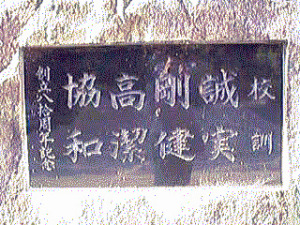 校訓
誠実
剛健
高潔
協和
創立八拾周年記念